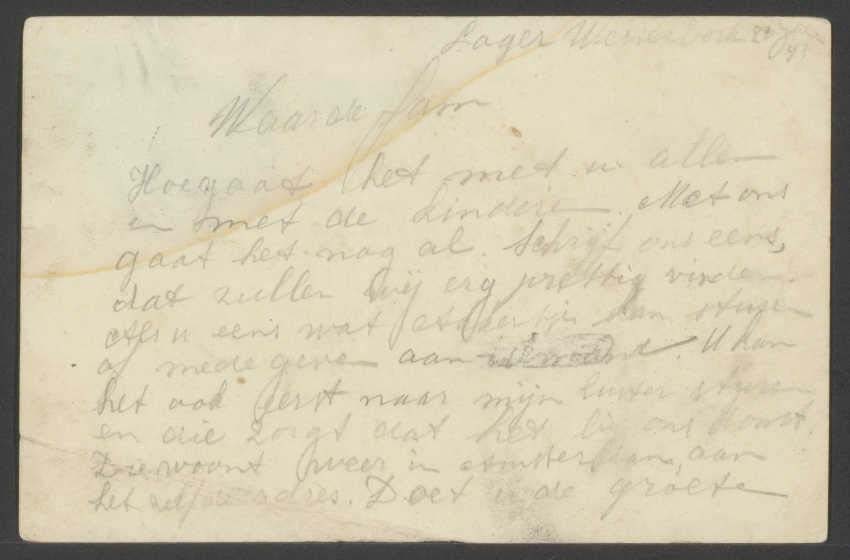 Lager
Waarde fam
Hoe gaat het met u allen
en met de kinderen. Met ons
gaat het nog al. Schrijf ons eens,
dat zullen wij erg prettig vinden.
Als u eens wat kan sturen
of mede geven aan iemand. U kan
het ook eerst naar mijn zuster sturen
en die zorgt dat het bij ons komt.
Die woont weer in Amsterdam, aan
het zelfde adres. Doet u de groeten